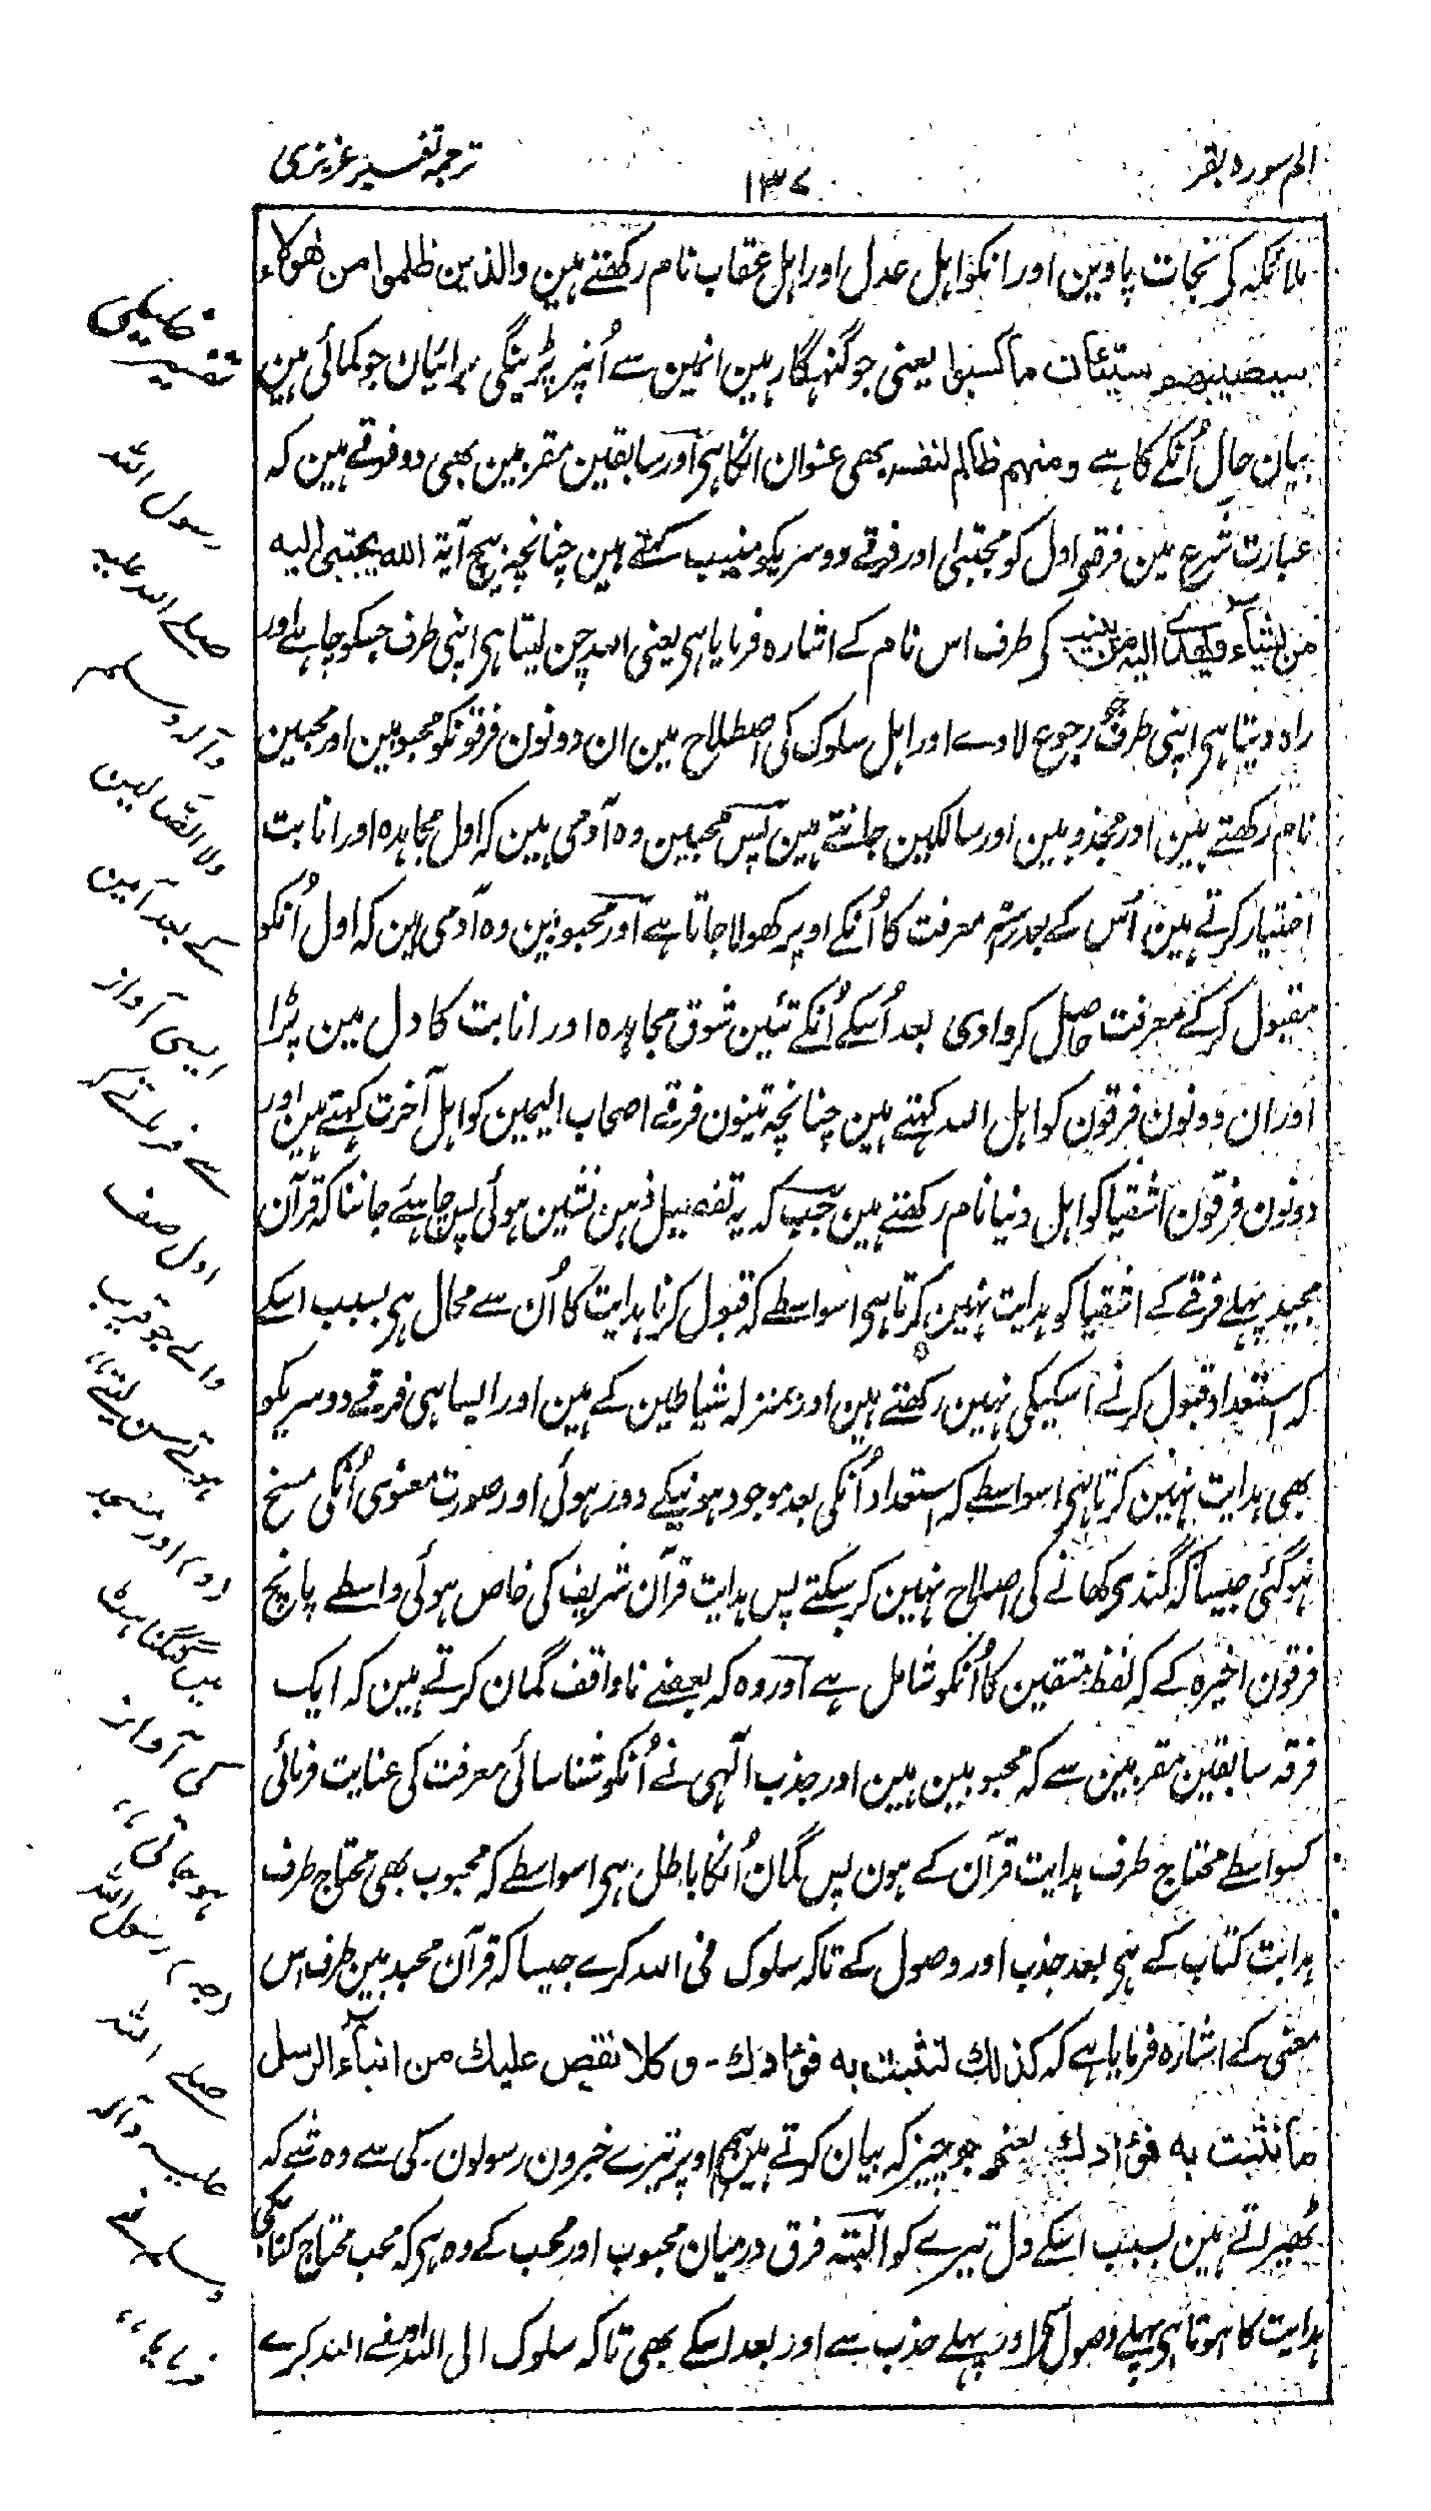 الم سورہ بقر
۱۳۷
ترجمہ تفسیر عزیزی
ملائکہ کر نجات پاوین اور انکو اہل عدل اور اہل عقاب نام رکھتے ہین والذین ظلموا من ھؤلاء
سیصیبھم سیئات ما کسبوا یعنی جو گنہگار ہین انمین سے اُنپر پڑینگی برائیان جو کمائی ہین
بیان حال اُنکے کا ہے ومنہم ظالم لنفسہ بھی عنوان انکا ہی اور سابقین مقربین بھی دو فرقے ہین کہ
عبارت شرع مین فرقہ اول کو مجتبی اور فرقے دوسریکو منیب کہتے ہین چنانچہ بیچ آیۃ اللہ یجتبی الیہ
من یشآء ویھدی الیہ من ینیب کی طرف اس نام کے اشارہ فرمایا ہی یعنی اللہ چن لیتا ہی اپنی طرف جسکو چاہے اور
راہ دیتا ہی اپنی طرف جو رجوع لاوے اور اہل سلوک کی اصطلاح مین ان دونون فرقونکو محبوبین اور محبین
نام رکھتے ہین اور مجذوبین اور سالکین جانتے ہین پس محبین وہ آدمی ہین کہ اول مجاہدہ اور انابت
اختیار کرتے ہین اُس کے بعد رستہ معرفت کا اُنکے اوپر کھولا جاتا ہے اور محبوبین وہ آدمی ہین کہ اول اُنکو
مقبول کرکے معرفت حاصل کروادی بعد اُسکے اُنکے تئین شوق مجاہدہ اور انابت کا دل مین پڑا
اور ان دونون فرقون کو اہل اللہ کہتے ہین چنانچہ تینون فرقے اصحاب الیمین کو اہل آخرت کہتے ہین اور
دونون فرقون اشقیا کو اہل دنیا نام رکھتے ہین جب کہ یہ تفصیل ذہن نشین ہوئی پس چاہئے جاننا کہ قرآن
مجید پہلے فرقے کے اشقیا کو ہدایت نہین کرتا ہی اسواسطے کہ قبول کرنا ہدایت کا اُن سے محال ہی بسبب اسکے
کہ استعداد قبول کرنے اسکیکی نہین رکھتے ہین اور بمنزلہ شیاطین کے ہین اور ایسا ہی فرقے دوسریکو
بھی ہدایت نہین کرتا ہی اسواسطے کہ استعداد اُنکی بعد موجود ہونیکے دور ہوئی اور صورت معنوی اُنکی مسخ
ہوگئی جیسا کہ گندی کھانے کی اصلاح نہین کرسکتے پس ہدایت قرآن شریف کی خاص ہوئی واسطے پانچ
فرقون اخیرہ کے کہ لفظ متقین کا اُنکو شامل ہے اور وہ کہ بعضے ناواقف گمان کرتے ہین کہ ایک
فرقہ سابقین مقربین سے کہ محبوبین ہین اور جذب الٰہی نے اُنکو شناسائی معرفت کی عنایت فرمائی
کسواسطے محتاج طرف ہدایت قرآن کے ہون پس گمان اُنکا باطل ہی اسواسطے کہ محبوب بھی محتاج طرف
ہدایت کتاب کے ہی بعد جذب اور وصول کے تاکہ سلوک فی اللہ کرے جیسا کہ قرآن مجید مین طرف اس
معنی کے اشارہ فرمایا ہے کہ کذلك لنثبت به فؤادك - وکلا نقص علیك من انبآء الرسل
ما نثبت به فؤادك یعنی جو چیز کہ بیان کرتے ہین ہم اوپر تیرے خبرون رسولون کی سے وہ شے کہ
ٹھیراتے ہین بسبب اسکے دل تیرے کو البتہ فرق درمیان محبوب اور محب کے وہ ہی کہ محب محتاج کتاب کی
ہدایت کا ہوتا ہی پہلے وصول کے اور پہلے جذب سے اور بعد اسکے بھی تاکہ سلوک الی اللہ اور فے اللہ کرے
تفسیر
رسول اللہ
صلے اللہ علیہ
وآلہ وسلم
ولا الضالین
کے بعد آمین
ایسی آواز
سے فرماتے کہ
اول صف
والے جو قریب
ہوتے سن لیتے،،
اور مسجد
میں
کی آواز
ہوجاتی،،
رسول اللہ
صلے اللہ
علیہ وآلہ
وسلم نے
فرمایا،،